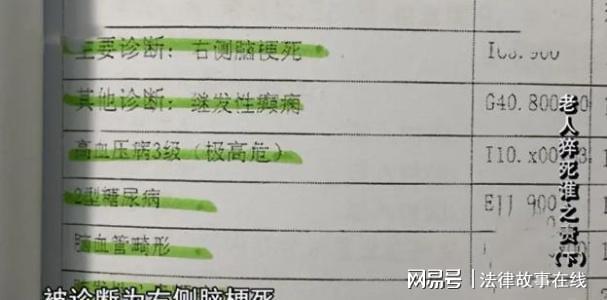 主要诊断：右侧脑梗死
其他诊断：继发性癫痫 G40.800
高血压病3级（极高危） I10.x00
2型糖尿病 E11.900
脑血管畸形
被诊断为右侧脑梗死
老人猝死谁之责（下）
网易号 法律故事在线